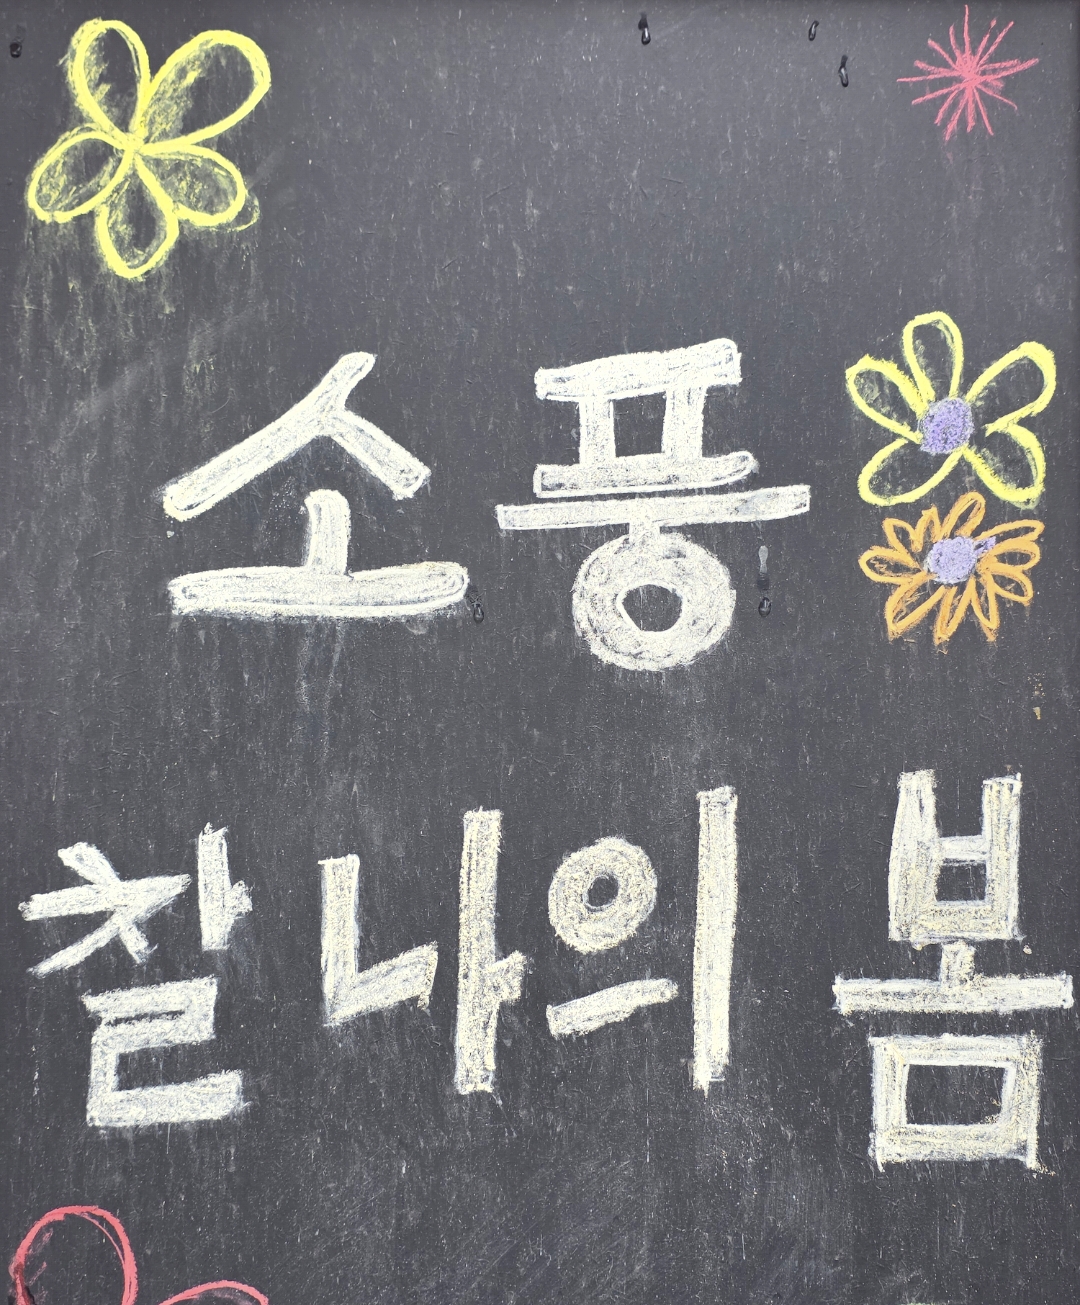 소풍
찰나의 봄